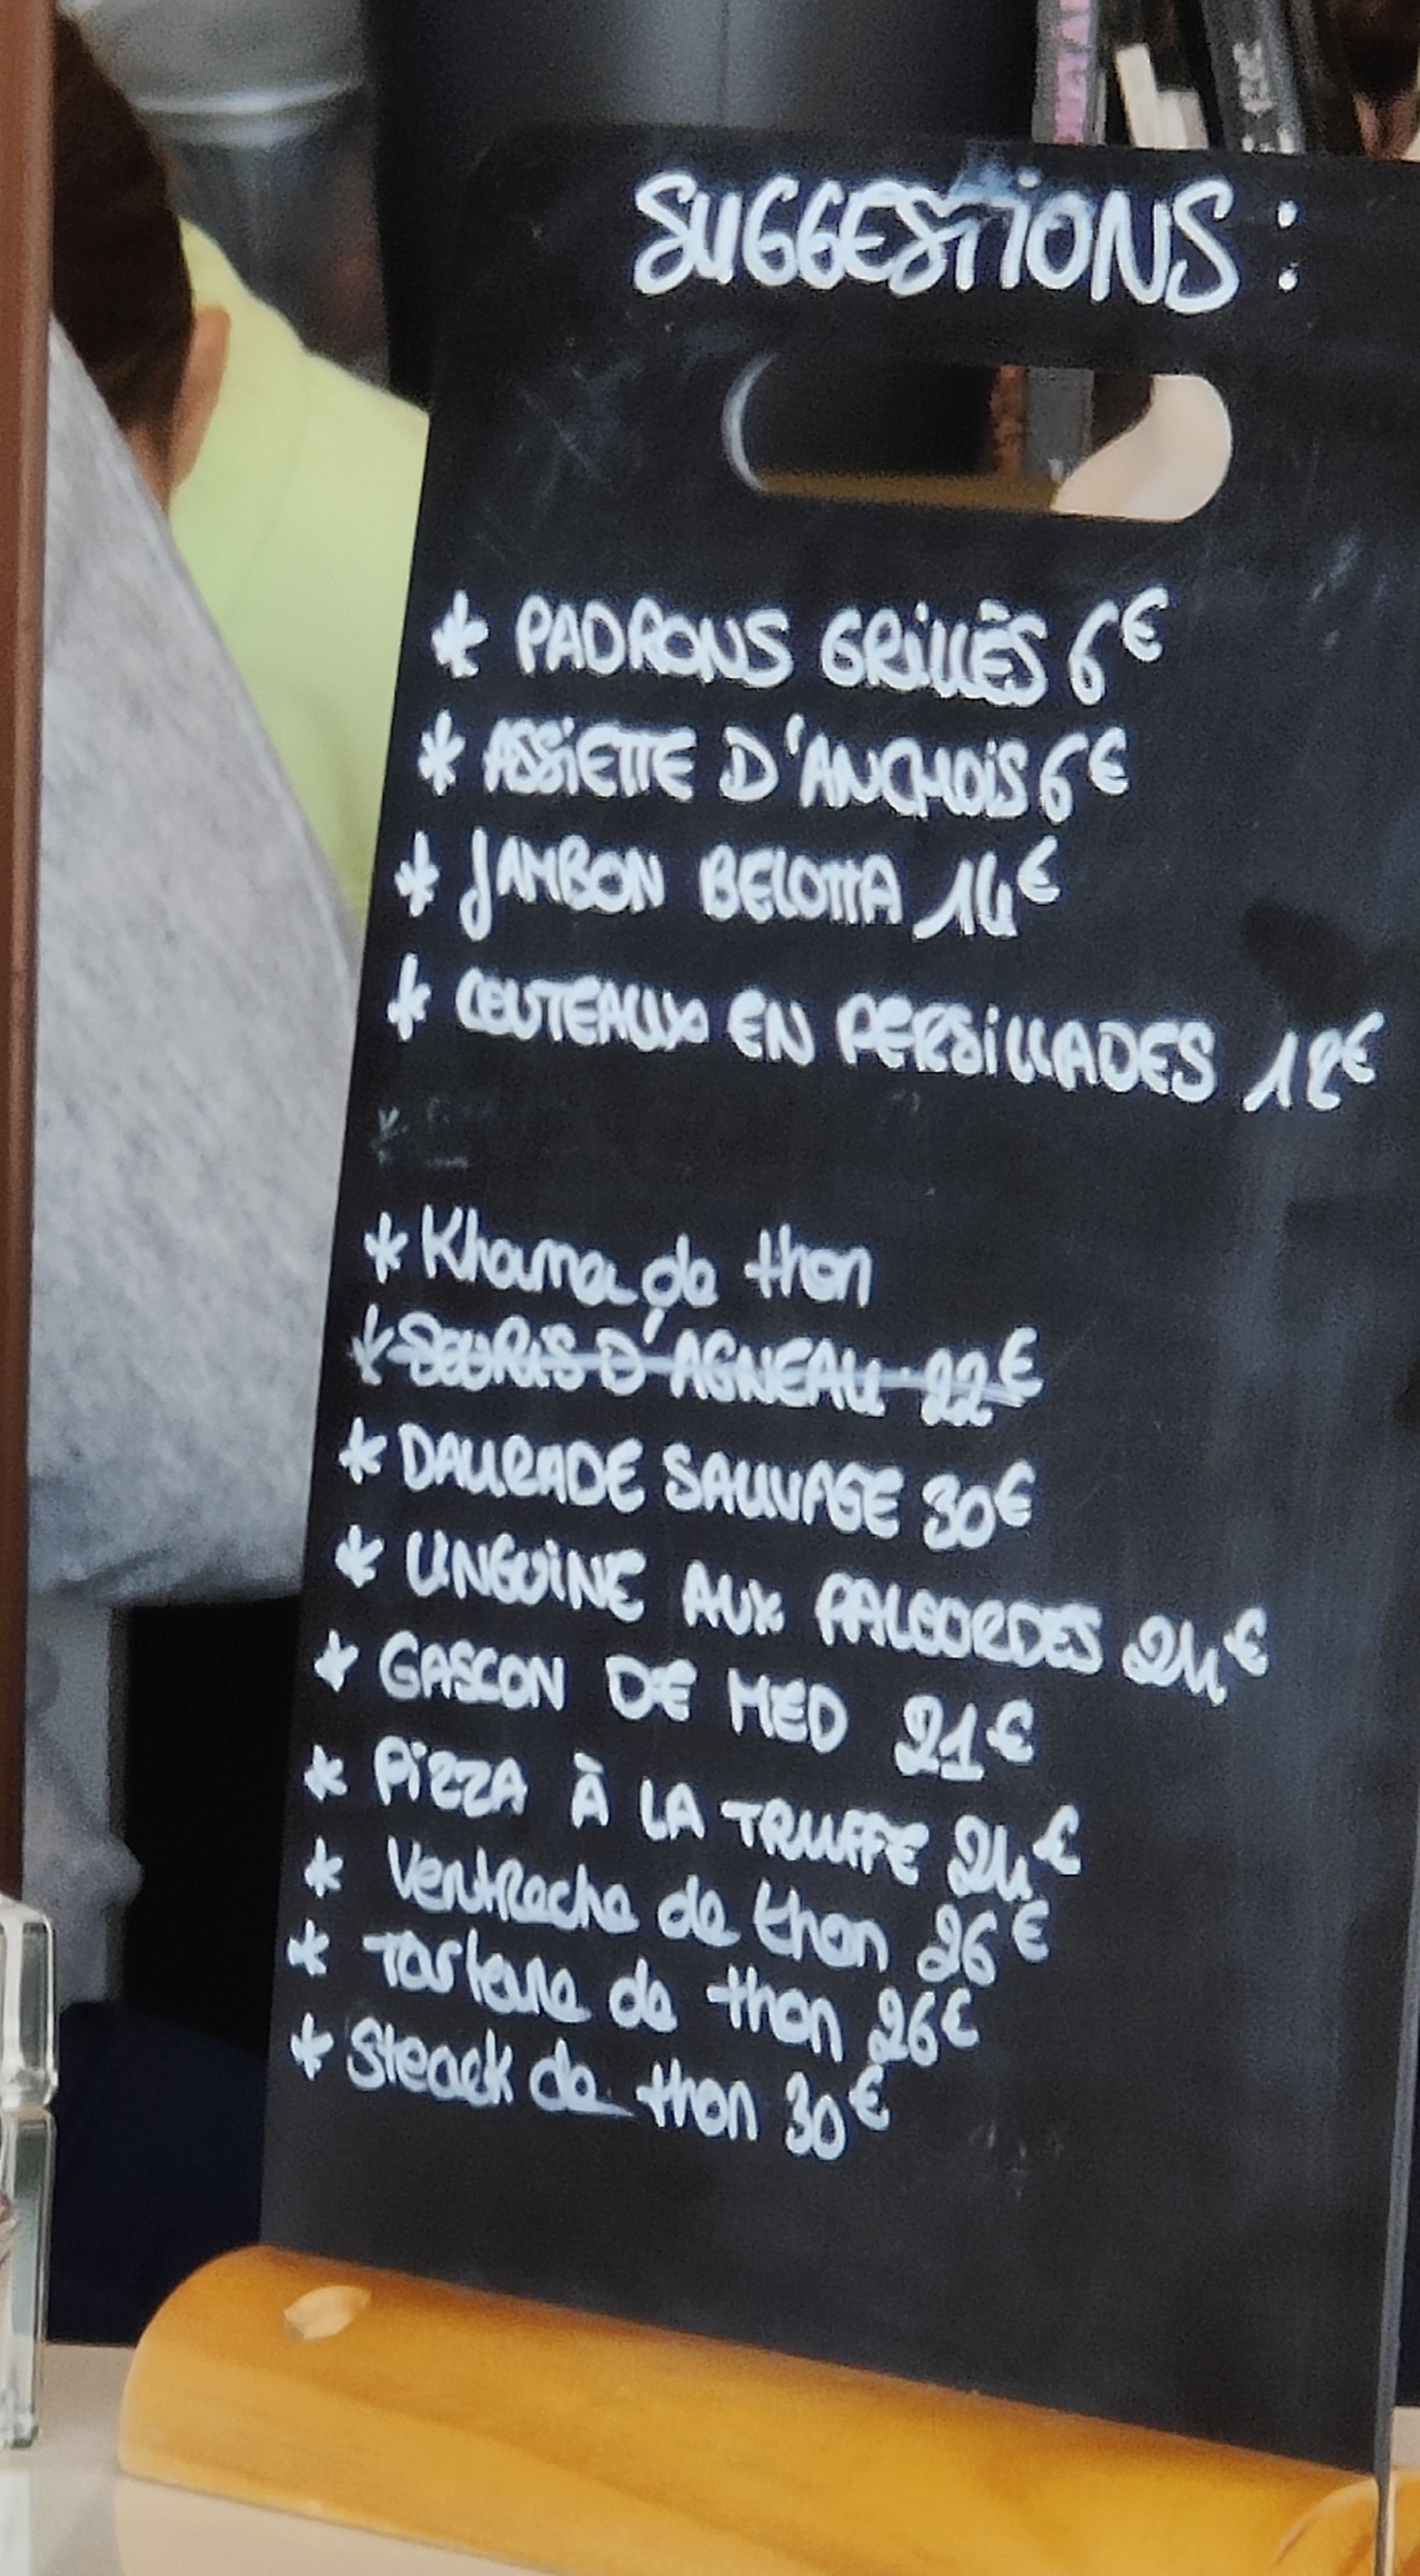 SUGGESTIONS :
* PADRONS GRILLÈS 6€
* ASSIETTE D'ANCHOIS 6€
* JAMBON BELOTTA 14€
* COUTEAUX EN PERSILLADES 12€
* Khama de thon
* SOURIS D'AGNEAU 22€
* DAURADE SAUVAGE 30€
* LINGUINE AUX PALOORDES 24€
* GASCON DE MED 21€
* PIZZA À LA TRUFFE 24€
* Ventreche de thon 26€
* Tartare de thon 26€
* Steack de thon 30€